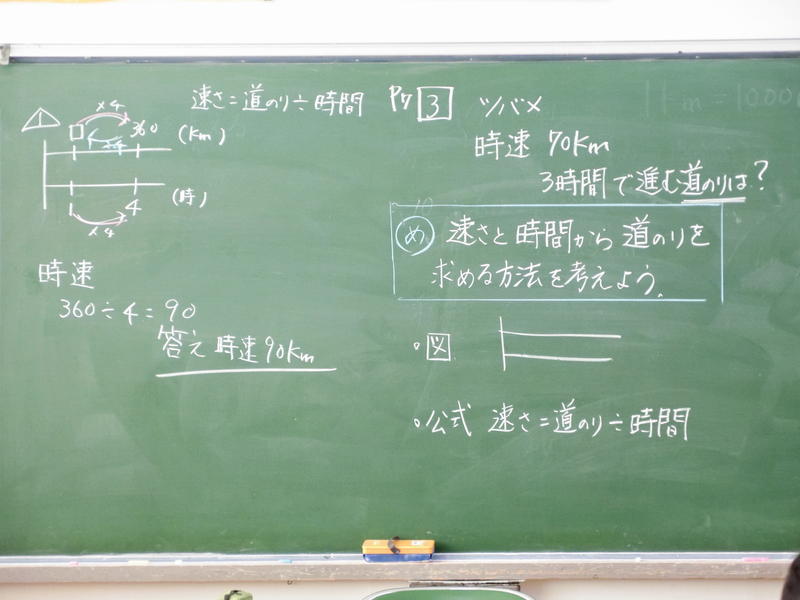 1
速さ=道のり÷時間
×4
□ 360 (km)
×4
1 4 (時)
×4
時速
360÷4=90
答え 時速90km
P7 3 ツバメ
時速 70km
3時間で進む道のりは?
め 速さと時間から道のりを
求める方法を考えよう。
・図
・公式 速さ=道のり÷時間